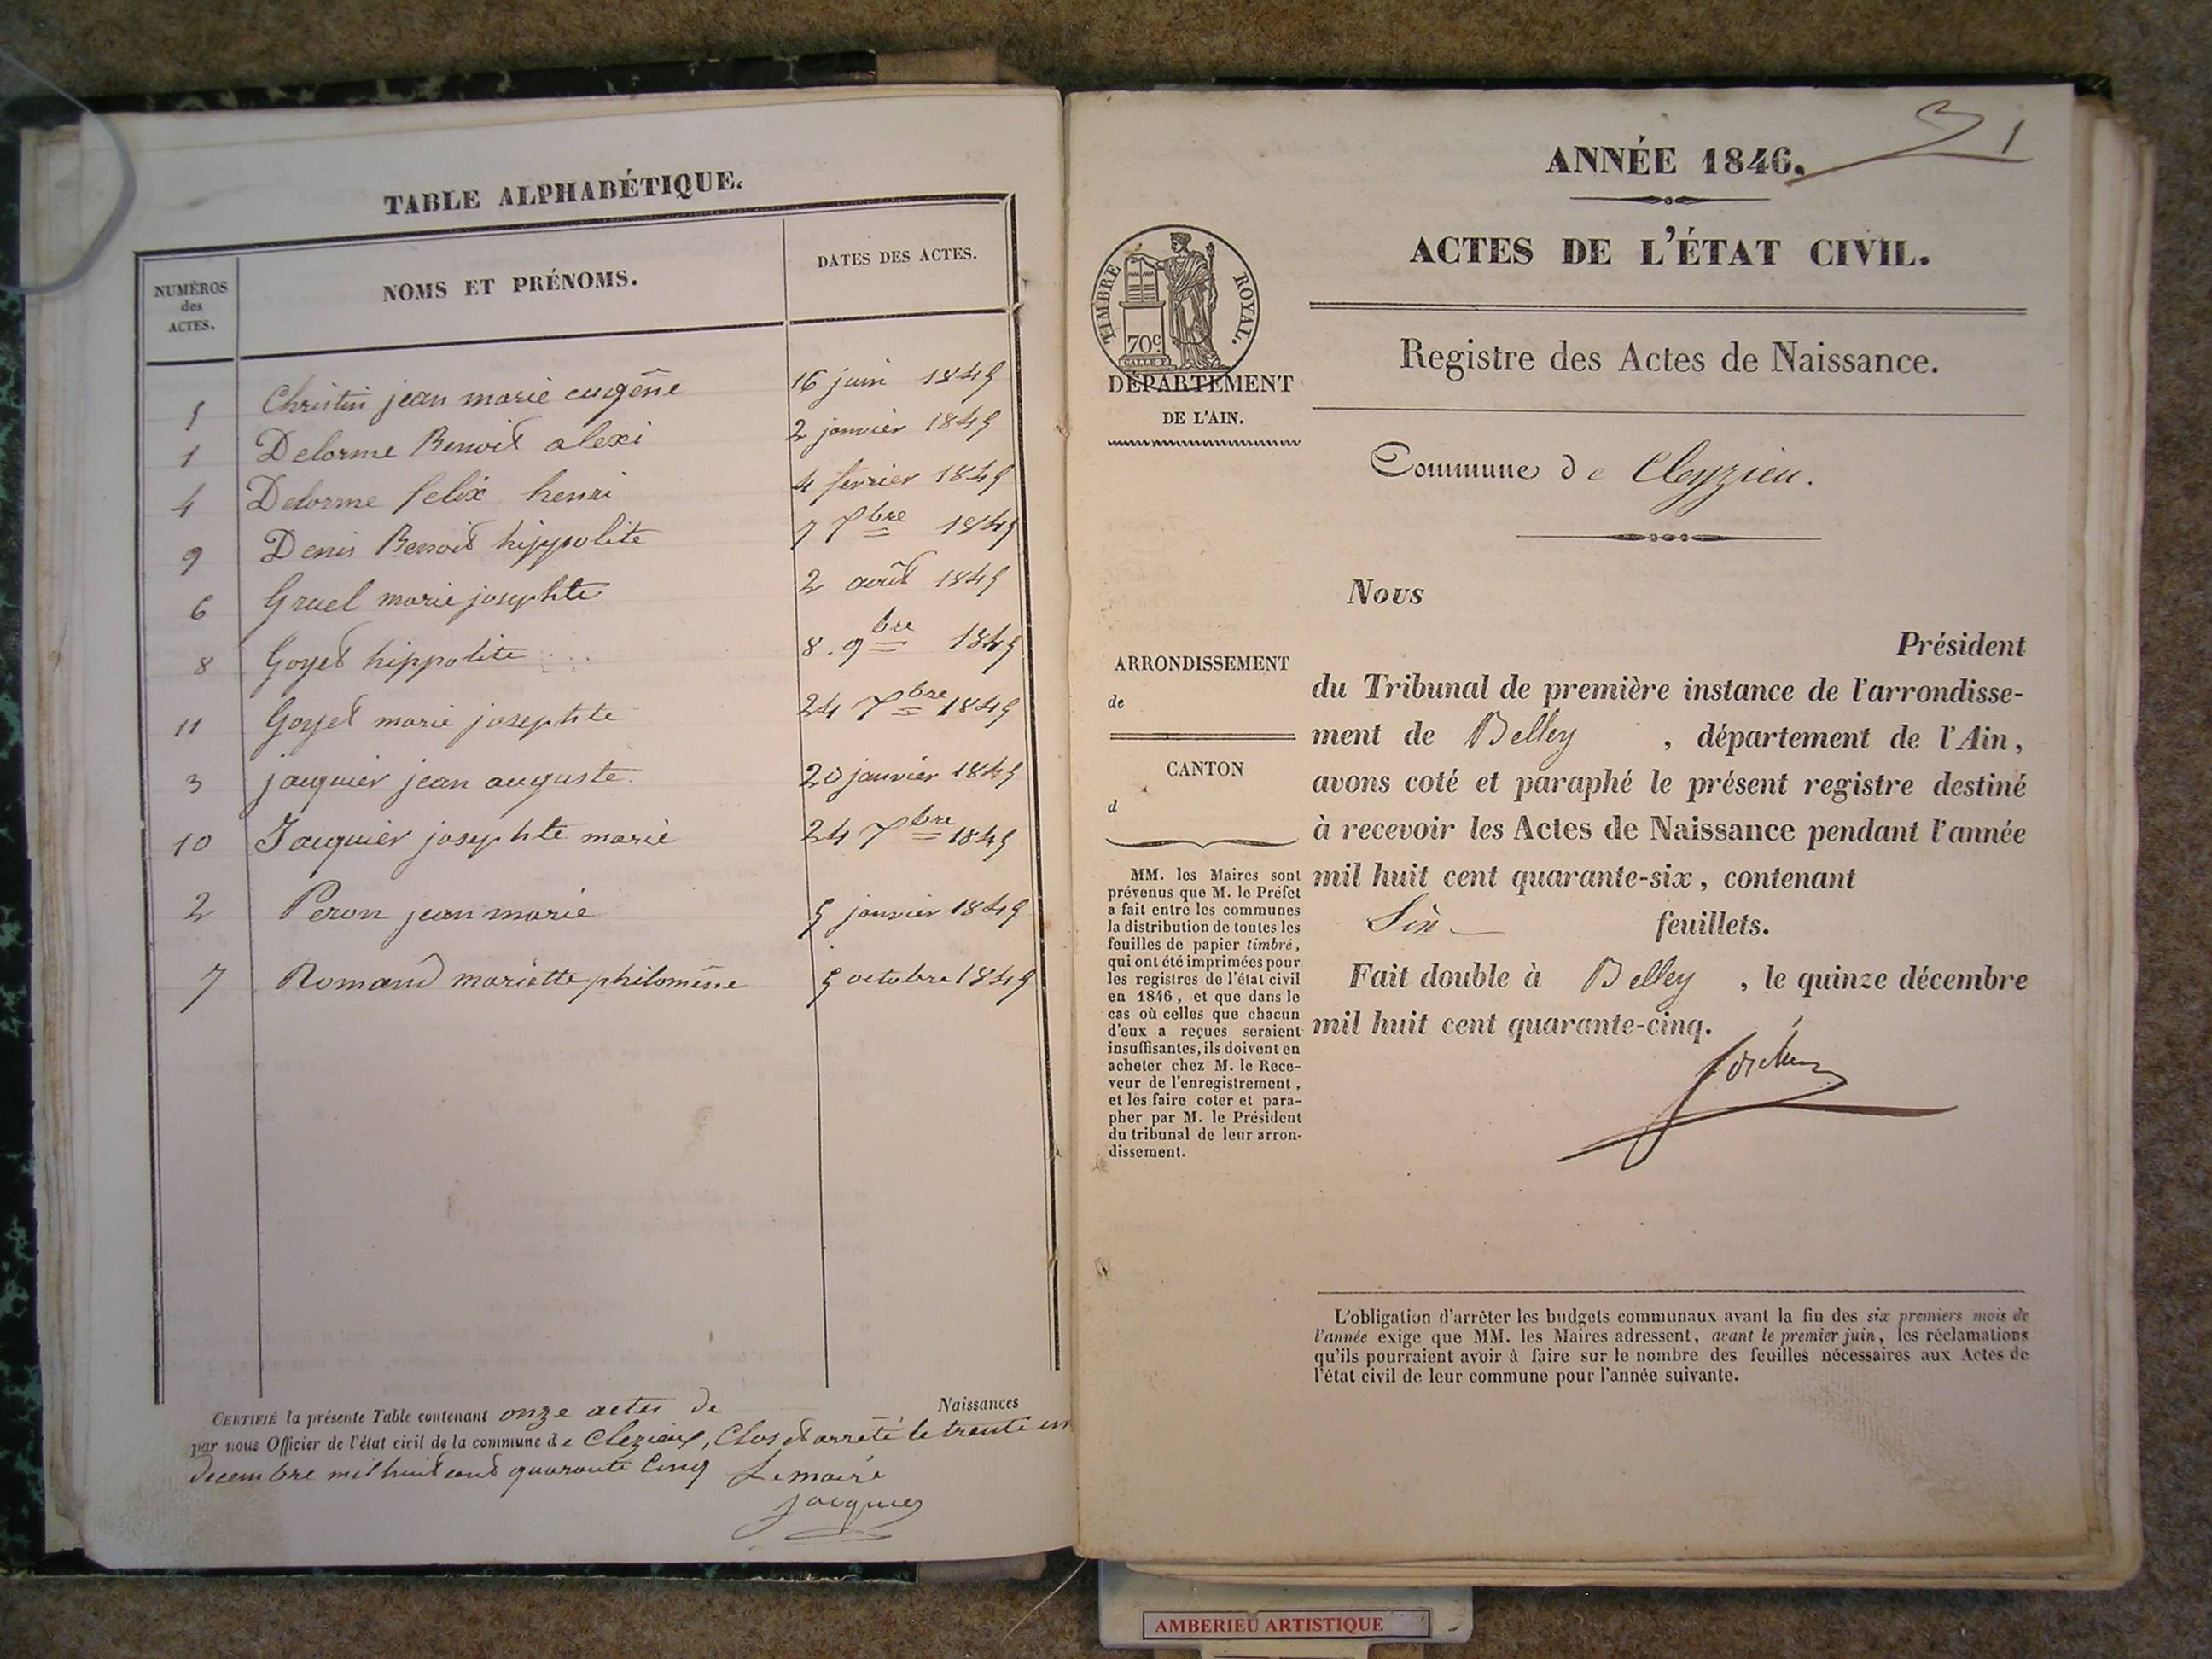 TABLE ALPHABÉTIQUE.
NUMÉROS
des
ACTES.
NOMS ET PRÉNOMS.
DATES DES ACTES.
5 Christin jean marie eugène 16 juin 1845
1 Delorme Benoit alexi 2 janvier 1845
4 Delorme felix henri 4 fevrier 1845
9 Denis Benoit hippolite 7 7bre 1845
6 Gruel marie josephte 2 août 1845
8 Goyet hippolite 8. 9bre 1845
11 Goyet marie josephte 24 7bre 1845
3 jacquier jean auguste. 20 janvier 1845
10 Jacquier josephte marie 24 7bre 1845
2 Peron jean marie 5 janvier 1845
7 Romand mariette philomène 5 octobre 1845
CERTIFIÉ la présente Table contenant onze actes de Naissances
par nous Officier de l'état civil de la commune de Clezieux, Clos et arrêté le trente un
decembre mil huit cent quarante Cinq Le maire
jacquier
1
ANNÉE 1846.
ACTES DE L'ÉTAT CIVIL.
TIMBRE ROYAL.
70c.
DÉPARTEMENT
DE L'AIN.
Registre des Actes de Naissance.
Commune de Cleyzieu.
Nous
Président
du Tribunal de première instance de l'arrondisse-
ment de Belley , département de l'Ain,
avons coté et paraphé le présent registre destiné
à recevoir les Actes de Naissance pendant l'année
mil huit cent quarante-six, contenant
Six feuillets.
Fait double à Belley , le quinze décembre
mil huit cent quarante-cinq.
ARRONDISSEMENT
de
CANTON
d
MM. les Maires sont
prévenus que M. le Préfet
a fait entre les communes
la distribution de toutes les
feuilles de papier timbré,
qui ont été imprimées pour
les registres de l'état civil
en 1846, et que dans le
cas où celles que chacun
d'eux a reçues seraient
insuffisantes, ils doivent en
acheter chez M. le Rece-
veur de l'enregistrement,
et les faire coter et para-
pher par M. le Président
du tribunal de leur arron-
dissement.
L'obligation d'arrêter les budgets communaux avant la fin des six premiers mois de
l'année exige que MM. les Maires adressent, avant le premier juin, les réclamations
qu'ils pourraient avoir à faire sur le nombre des feuilles nécessaires aux Actes de
l'état civil de leur commune pour l'année suivante.
AMBERIEU ARTISTIQUE